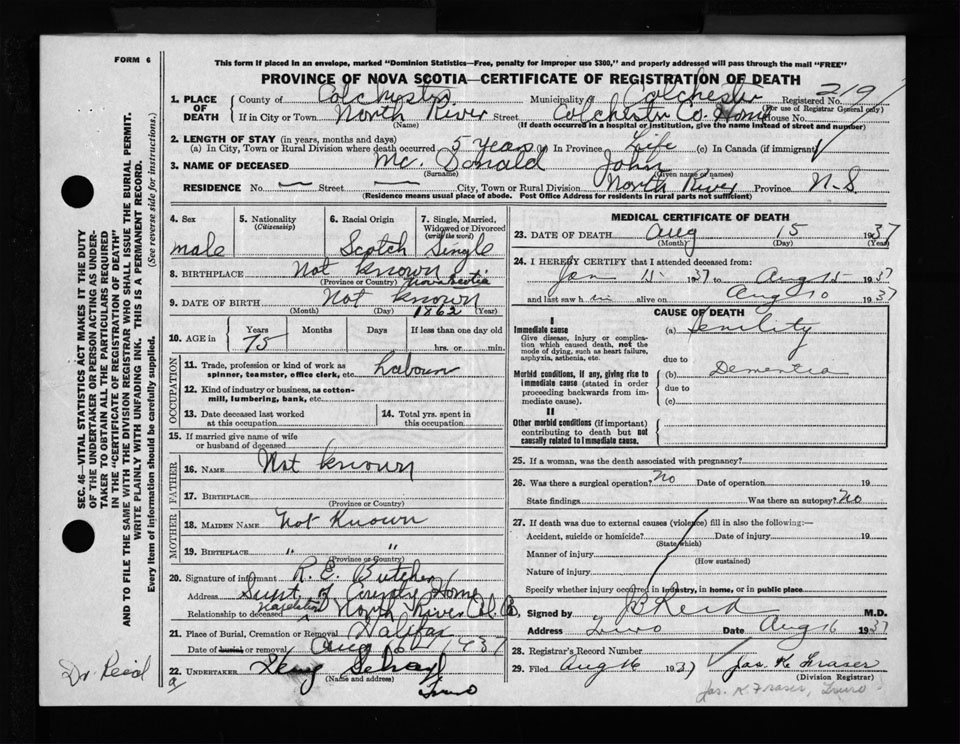 FORM 6
This form if placed in an envelope, marked "Dominion Statistics—Free, penalty for improper use $300," and properly addressed will pass through the mail "FREE"
PROVINCE OF NOVA SCOTIA—CERTIFICATE OF REGISTRATION OF DEATH
SEC. 46—VITAL STATISTICS ACT MAKES IT THE DUTY
OF THE UNDERTAKER OR PERSON ACTING AS UNDER-
TAKER TO OBTAIN ALL THE PARTICULARS REQUIRED
IN THE "CERTIFICATE OF REGISTRATION OF DEATH"
AND TO FILE THE SAME WITH THE DIVISION REGISTRAR WHO SHALL ISSUE THE BURIAL PERMIT.
WRITE PLAINLY WITH UNFADING INK. THIS IS A PERMANENT RECORD.
Every item of information should be carefully supplied. (See reverse side for instructions.)
1. PLACE OF DEATH County of Colchester Municipality of Colchester Registered No. 219
(For use of Registrar General only)
If in City or Town North River Street Colchester Co. Home House No.
(Name) (If death occurred in a hospital or institution, give the name instead of street and number)
2. LENGTH OF STAY (in years, months and days)
(a) In City, Town or Rural Division where death occurred 5 Years (b) In Province Life (c) In Canada (if immigrant)
3. NAME OF DECEASED Mc. Donald John
(Surname) (Given name or names)
RESIDENCE No. — Street — City, Town or Rural Division North River Province N.S.
(Residence means usual place of abode. Post Office Address for residents in rural parts not sufficient)
4. Sex male
5. Nationality (Citizenship)
6. Racial Origin Scotch
7. Single, Married, Widowed or Divorced (write the word) Single
8. BIRTHPLACE Not known
(Province or Country) Nova Scotia
9. DATE OF BIRTH Not known
(Month) (Day) 1862 (Year)
10. AGE in Years 75 Months Days If less than one day old hrs. or min.
OCCUPATION
11. Trade, profession or kind of work as spinner, teamster, office clerk, etc. Labour
12. Kind of industry or business, as cotton-mill, lumbering, bank, etc.
13. Date deceased last worked at this occupation
14. Total yrs. spent in this occupation
15. If married give name of wife or husband of deceased
FATHER
16. NAME Not known
17. BIRTHPLACE
(Province or Country)
MOTHER
18. MAIDEN NAME Not Known
19. BIRTHPLACE " "
(Province or Country)
20. Signature of informant R. E. Butcher
Address Supt. of County Home
Relationship to deceased North River Col. Co.
21. Place of Burial, Cremation or Removal Halifax
Date of burial or removal Aug 16 1937
22. UNDERTAKER
(Name and address) Truro
MEDICAL CERTIFICATE OF DEATH
23. DATE OF DEATH Aug 15 1937
(Month) (Day) (Year)
24. I HEREBY CERTIFY that I attended deceased from:
Jan 15 1937 to Aug 15 1937
and last saw him alive on Aug 10 1937
CAUSE OF DEATH
I
Immediate cause (a) Senility
Give disease, injury or complica-
tion which caused death, not the
mode of dying, such as heart failure,
asphyxia, asthenia, etc.
due to
Morbid conditions, if any, giving rise to (b) Dementia
immediate cause (stated in order due to
proceeding backwards from im- (c)
mediate cause).
II
Other morbid conditions (if important)
contributing to death but not
causally related to immediate cause.
25. If a woman, was the death associated with pregnancy?
26. Was there a surgical operation? No Date of operation 19
State findings Was there an autopsy? No
27. If death was due to external causes (violence) fill in also the following:—
Accident, suicide or homicide? Date of injury 19
(State which)
Manner of injury
(How sustained)
Nature of injury
Specify whether injury occurred in industry, in home, or in public place
Signed by Reid M.D.
Address Truro Date Aug 16 1937
28. Registrar's Record Number
29. Filed Aug 16 1937 Jas. K. Fraser
(Division Registrar)
Jas. K. Fraser, Truro
Dr. Reid